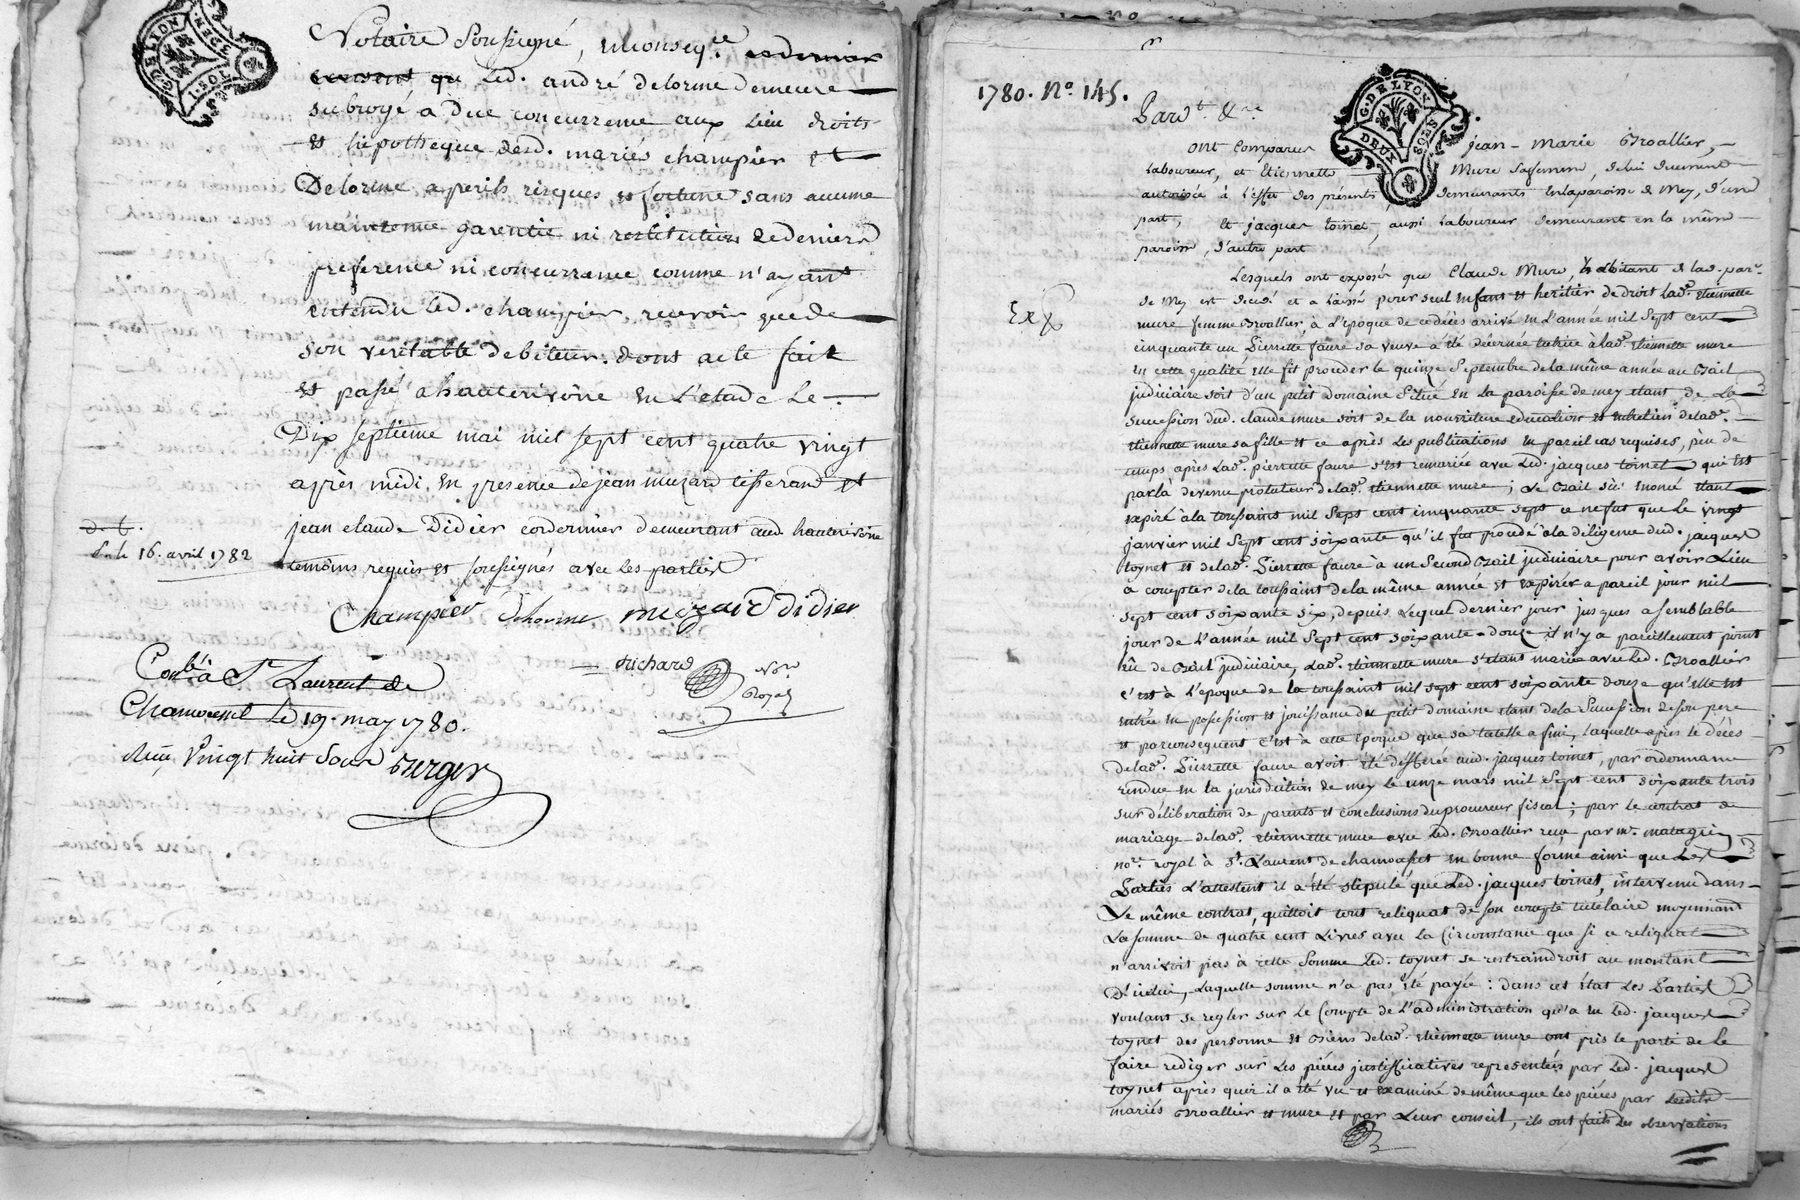 G. DE LYON
DEUX SOLS
Notaire soussigné, en conseq.ce ce dernier
que led. andré delorme demeure
subrogé a due concurrence aux lieu droits
et hipotheque desd. mariés champier et
Delorme a perils risques et fortune sans aucune
maintenue garentie ni restitution de deniers
preference ni concurrance comme n'ayant
entendu led. champier recevoir que de
son veritable debiteur. dont acte fait
et passé a hauterivoire en l'etude le
Dix septieme mai mil sept cent quatre vingt
après midi en presence de jean muzard tisserand et
jean claude Didier cordonnier demeurant aud. hauterivoire
temoins requis et soussignés avec les parties
d. l.
le 16. avril 1782
Champier Delorme muzard didier
Richard
Nre Royal
Conlé a St Laurent de
Chamousset le 19. may 1780.
Reçu vingt huit sous Berger
1780. No. 145.
Pard.t &.re
G. DE LYON
DEUX SOLS
ont comparus jean-marie Broallier,
laboureur, et Etiennette Mure sa femme, de lui duement
autorisée à l'effet des présentes, demeurants en la paroisse de Mey, d'une
part, Et jacques toinet, aussi laboureur demeurant en la même
paroisse, d'autre part
Exp
Lesquels ont exposés que Claude Mure, habitant de lad. par.
de Mey est decedé et a laissé pour seul enfant et heritier de droit lad. etiennette
mure femme Broallier, à l'epoque de ce décès arrivé en l'année mil sept cent
cinquante un Pierrette faure sa veuve a été décernée tutrice à lad. etiennette mure
en cette qualité elle fit proceder le quinze Septembre de la même année au Bail
judiciaire soit d'un petit domaine situé en la paroisse de mey etant de la
succession dud. claude mure soit de la nourriture education et entretien de lad.
etiennette mure sa fille et ce après les publications en pareil cas requises, peu de
temps après lad. pierrette faure s'est remariée avec led. jacques toinet qui est
par là devenu protuteur de lad. etiennette mure; le Bail sus enoncé etant
expiré à la toussaints mil sept cent cinquante sept ce ne fut que le vingt
janvier mil sept cent soixante qu'il fut procedé à la diligence dud. jacques
toynet et de lad. Pierrette faure à un second Bail judiciaire pour avoir lieu
a compter de la toussaint de la même année et expirer a pareil jour mil
sept cent soixante six, depuis lequel dernier jour jusques a semblable
jour de l'année mil sept cent soixante-douze il n'y a pareillement point
eu de Bail judiciaire, lad. etiennette mure s'etant mariée avec led. Broallier
c'est à l'epoque de la toussaint mil sept cent soixante douze qu'elle est
entrée en possession et jouissance du petit domaine etant de la succession de son pere
et par consequent c'est à cette epoque que sa tutelle a fini, laquelle après le décès
de lad. Pierrette faure avoit été differée aud. jacques toinet, par ordonnance
rendue en la jurisdiction de mey le onze mars mil sept cent soixante trois
sur déliberation de parents et conclusions du procureur fiscal; par le contrat de
mariage de lad. etiennette mure avec led. Broallier recu par me. matagrin
no.re royal à St. Laurent de chamousset en bonne forme ainsi que les
Parties l'attestent il a été stipulé que led. jacques toinet, intervenu dans
Le même contrat, quittoit tout reliquat de son compte tutelaire moyennant
La somme de quatre cent livres avec la circonstance que si ce reliquat
n'arrivoit pas à cette somme led. toynet se restraindroit au montant
D'icelui, laquelle somme n'a pas été payée: dans cet état les Parties
voulant se regler sur le Compte de l'administration qu'a eu led. jacques
toynet des personne et Biens de lad. etiennette mure ont pris le parti de le
faire rediger sur les pièces justificatives representées par led. jacques
toynet après quoi il a été vu et examiné de même que les pièces par lesdits
mariés Broallier et mure et par leur conseil, ils ont faits les observations